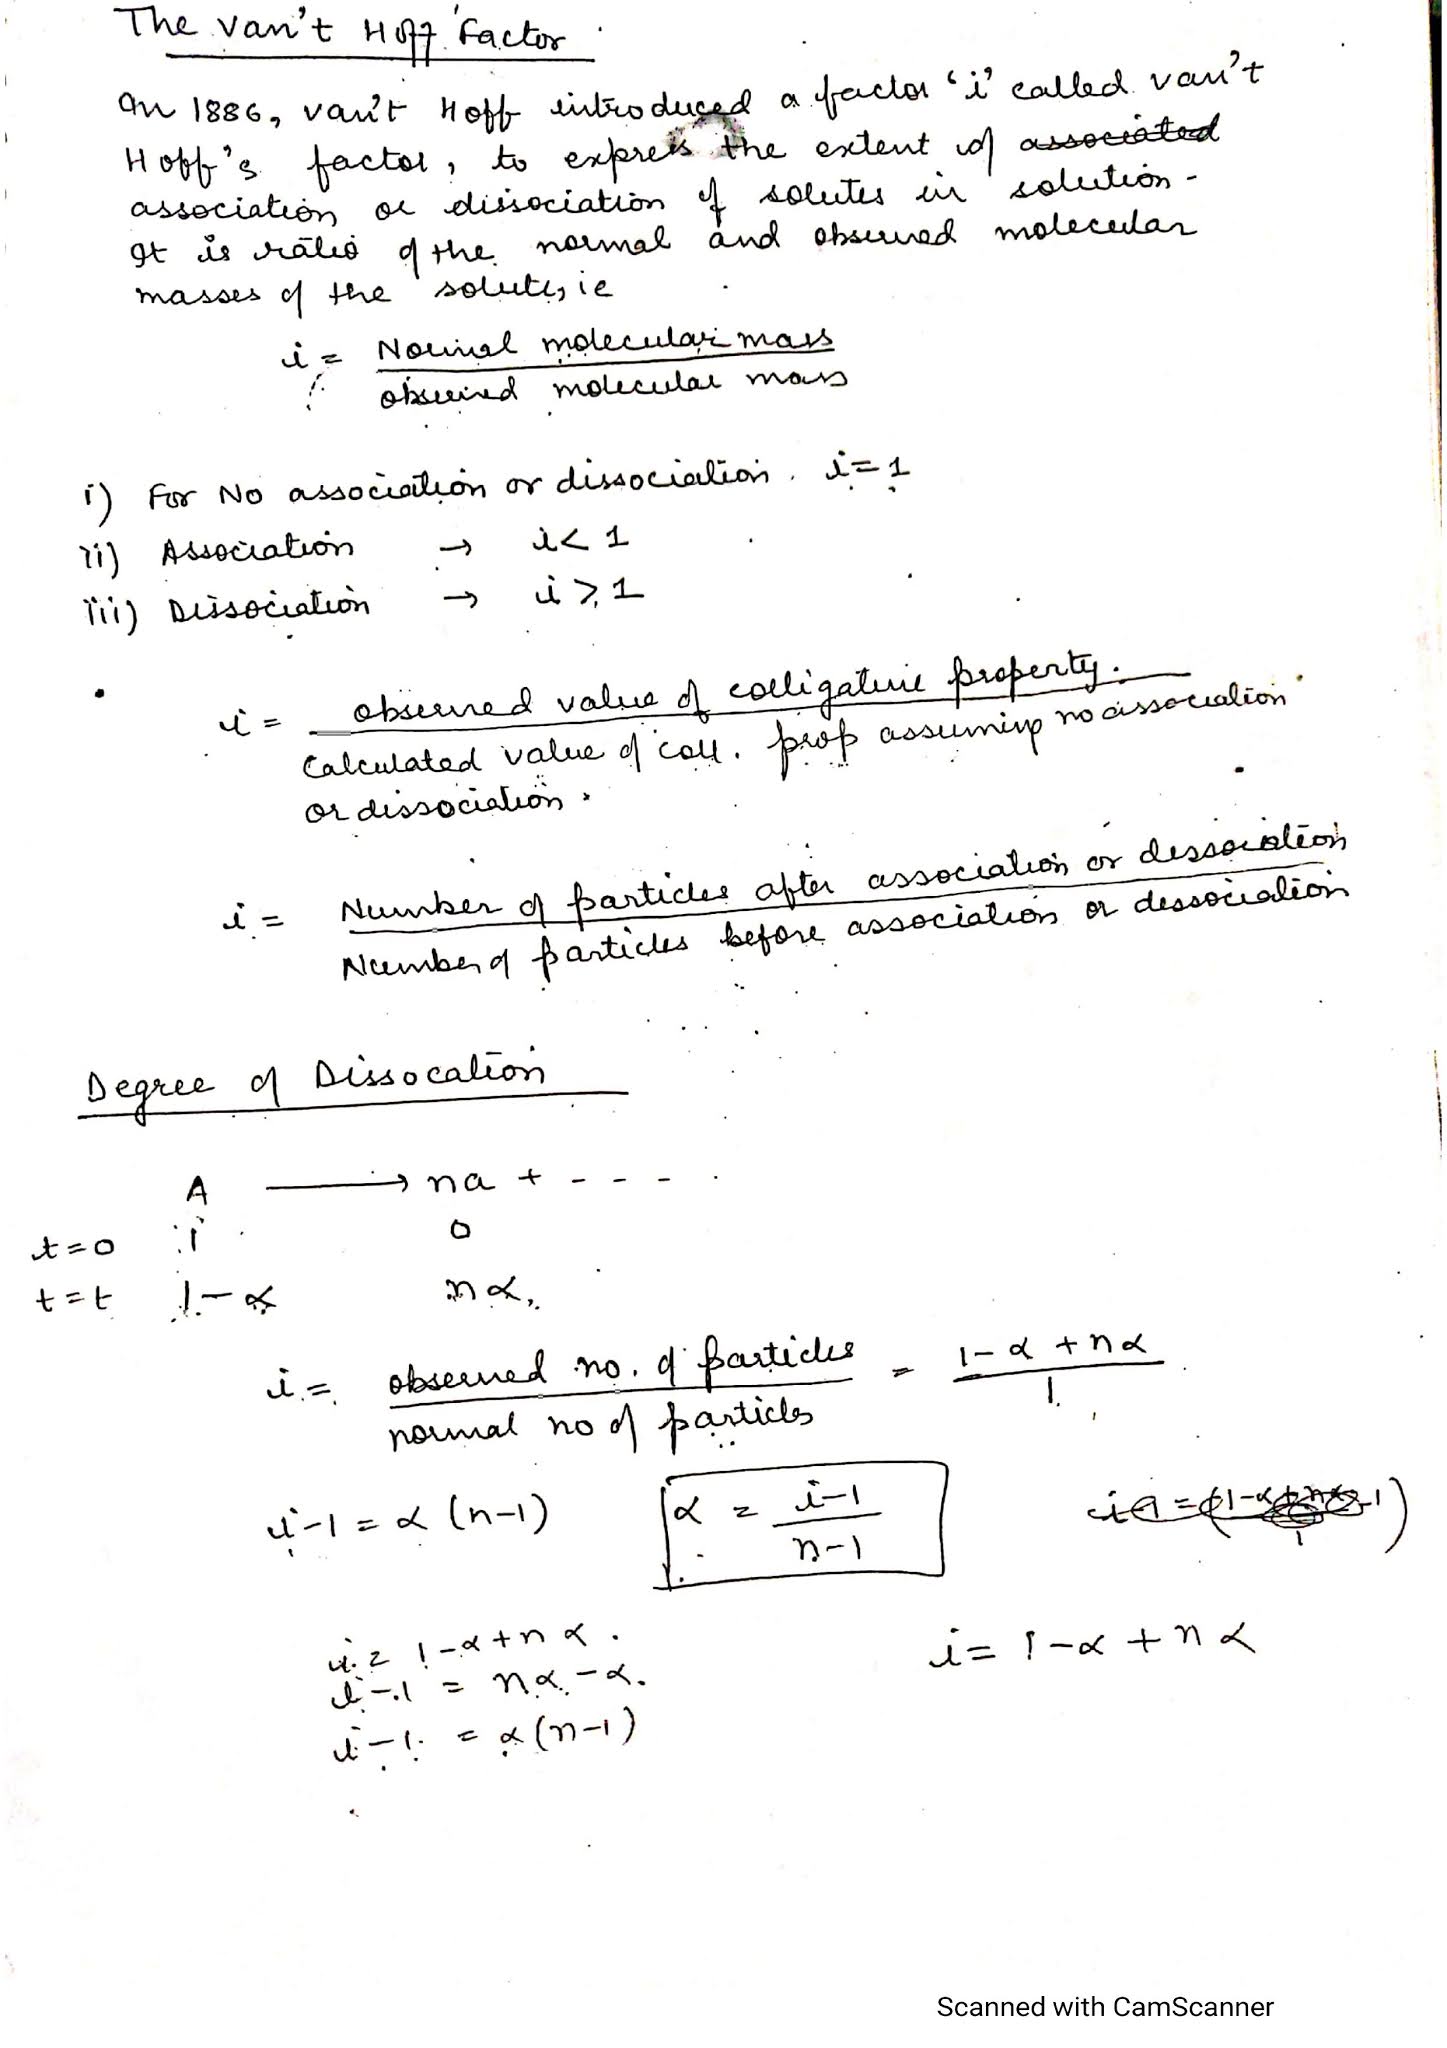 The van't Hoff Factor
In 1886, van't Hoff introduced a factor 'i' called van't
Hoff's factor, to express the extent of associated
association or dissociation of solutes in solution.
It is ratio of the normal and observed molecular
masses of the solute, ie
i = Normal molecular mass
observed molecular mass
i) For No association or dissociation. i = 1
ii) Association → i < 1
iii) Dissociation → i > 1
i = observed value of colligative property.
Calculated value of coll. prop assuming no association
or dissociation.
i = Number of particles after association or dissociation
Number of particles before association or dissociation
Degree of Dissocation
A ⟶ na + - - -
t=0 1 0
t=t 1-α nα
i = observed no. of particles = 1-α+nα
normal no of particles 1
i-1 = α (n-1) α = i-1
n-1
i = 1-α+nα. i = 1-α+nα
i-1 = nα-α.
i-1 = α(n-1)
Scanned with CamScanner